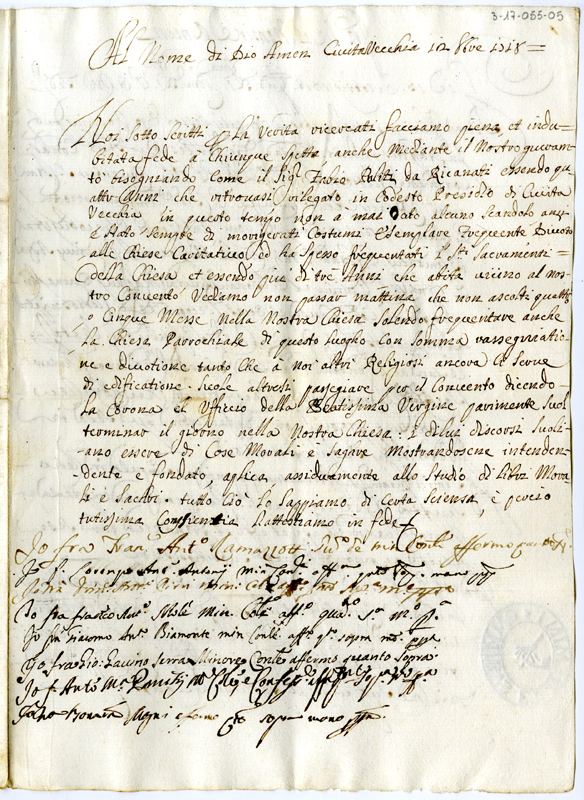 3-17-055-05
Al Nome di Dio Amen Civita Vecchia 12 8bre 1718=
Noi sotto scritti p la verità ricercati facciamo piena et indu-
bitata fede a chiunque spetta anche mediante il nostro giuram-
to bisegniando come il Sig. Fabio Puliti da Ricanati essendo qu
attro Anni che ritrovasi rilegato in codesto Presidio di Civita
Vecchia in questo tempo non à mai dato alcuno scandalo anzi
è stato sempre di morigerati costumi Esemplare frequente Divoto
alle Chiese Caritativo ed ha spesso frequentati i Sti Sacramenti=
della Chiesa et essendo più di tre Anni che abita vicino al nos-
tro Convento Vediamo non passar mattina che non ascolti quattro
o cinque Messe nella Nostra Chiesa solendo frequentare anche
la Chiesa Parochiale di questo luogho con somma rassegniatio-
ne e divotione tanto che a noi altri Religiosi ancora ci serve
di edificatione. Suole altresì passegiare per il Convento dicendo-
la Corona et Ufficio della Beatissima Vergine parimente suol
terminar il giorno nella Nostra Chiesa: i di lui discorsi suoli-
ano essere di Cose Morali e Sagre Mostrandosene intenden-
dente e fondato, aplica assiduamente allo Studio di Libri Mora-
li e Sacri. tutto ciò lo sappiamo di Certa Scienza, e percio
tutissima Conscientia Rattestiamo in fede
Io fra Fran. Anto Min Conle affermo
Io f. Lorenzo Ant. Antonij Min Conle aff
Io fra Franco Min. Cole affo
Io fra Giacomo Ant. Biamonte min Conle affo qto sopra mo. ppa
Io fra Gio: Iacomo Serra Minore Conle affermo quanto sopra
Io f. Anto Ma
affermo come sopra mano ppa